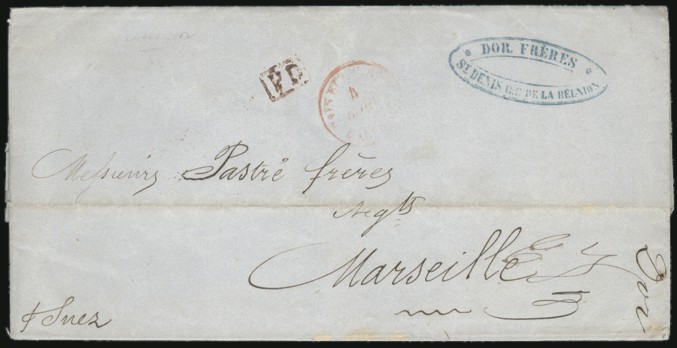 P.D.
DOR. FRÈRES
ST DENIS ILE DE LA RÉUNION
Messieurs Pastré frères
Negts
Marseille
p Suez
Dor